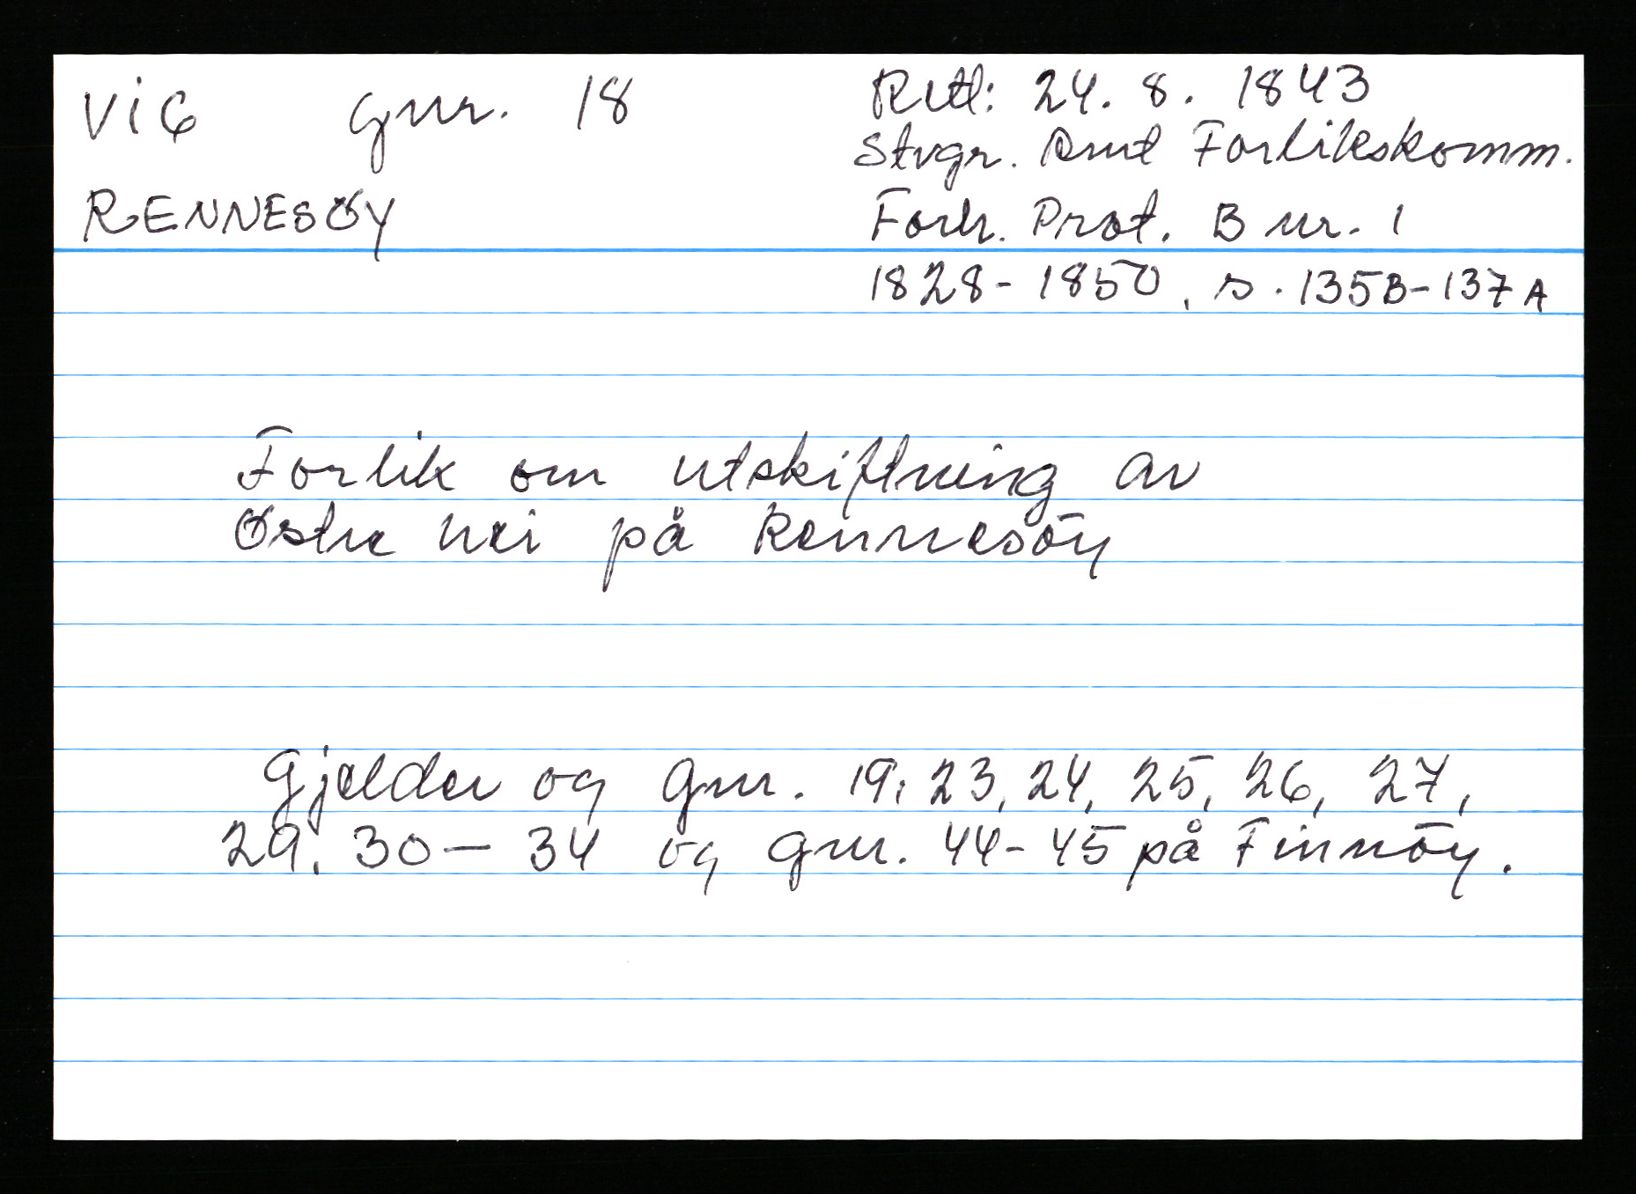 VIG gnr. 18
RENNESÖY
Retl: 24. 8. 1843
Stvgr. Amt Forlikskomm.
Forh. Prot. B nr. 1
1828-1850, s. 135B-137A
Forlik om utskiftning av
Østre hei på Rennesöy
Gjelder og gnr. 19, 23, 24, 25, 26, 27,
29, 30-34 og gnr. 44-45 på Finnöy.